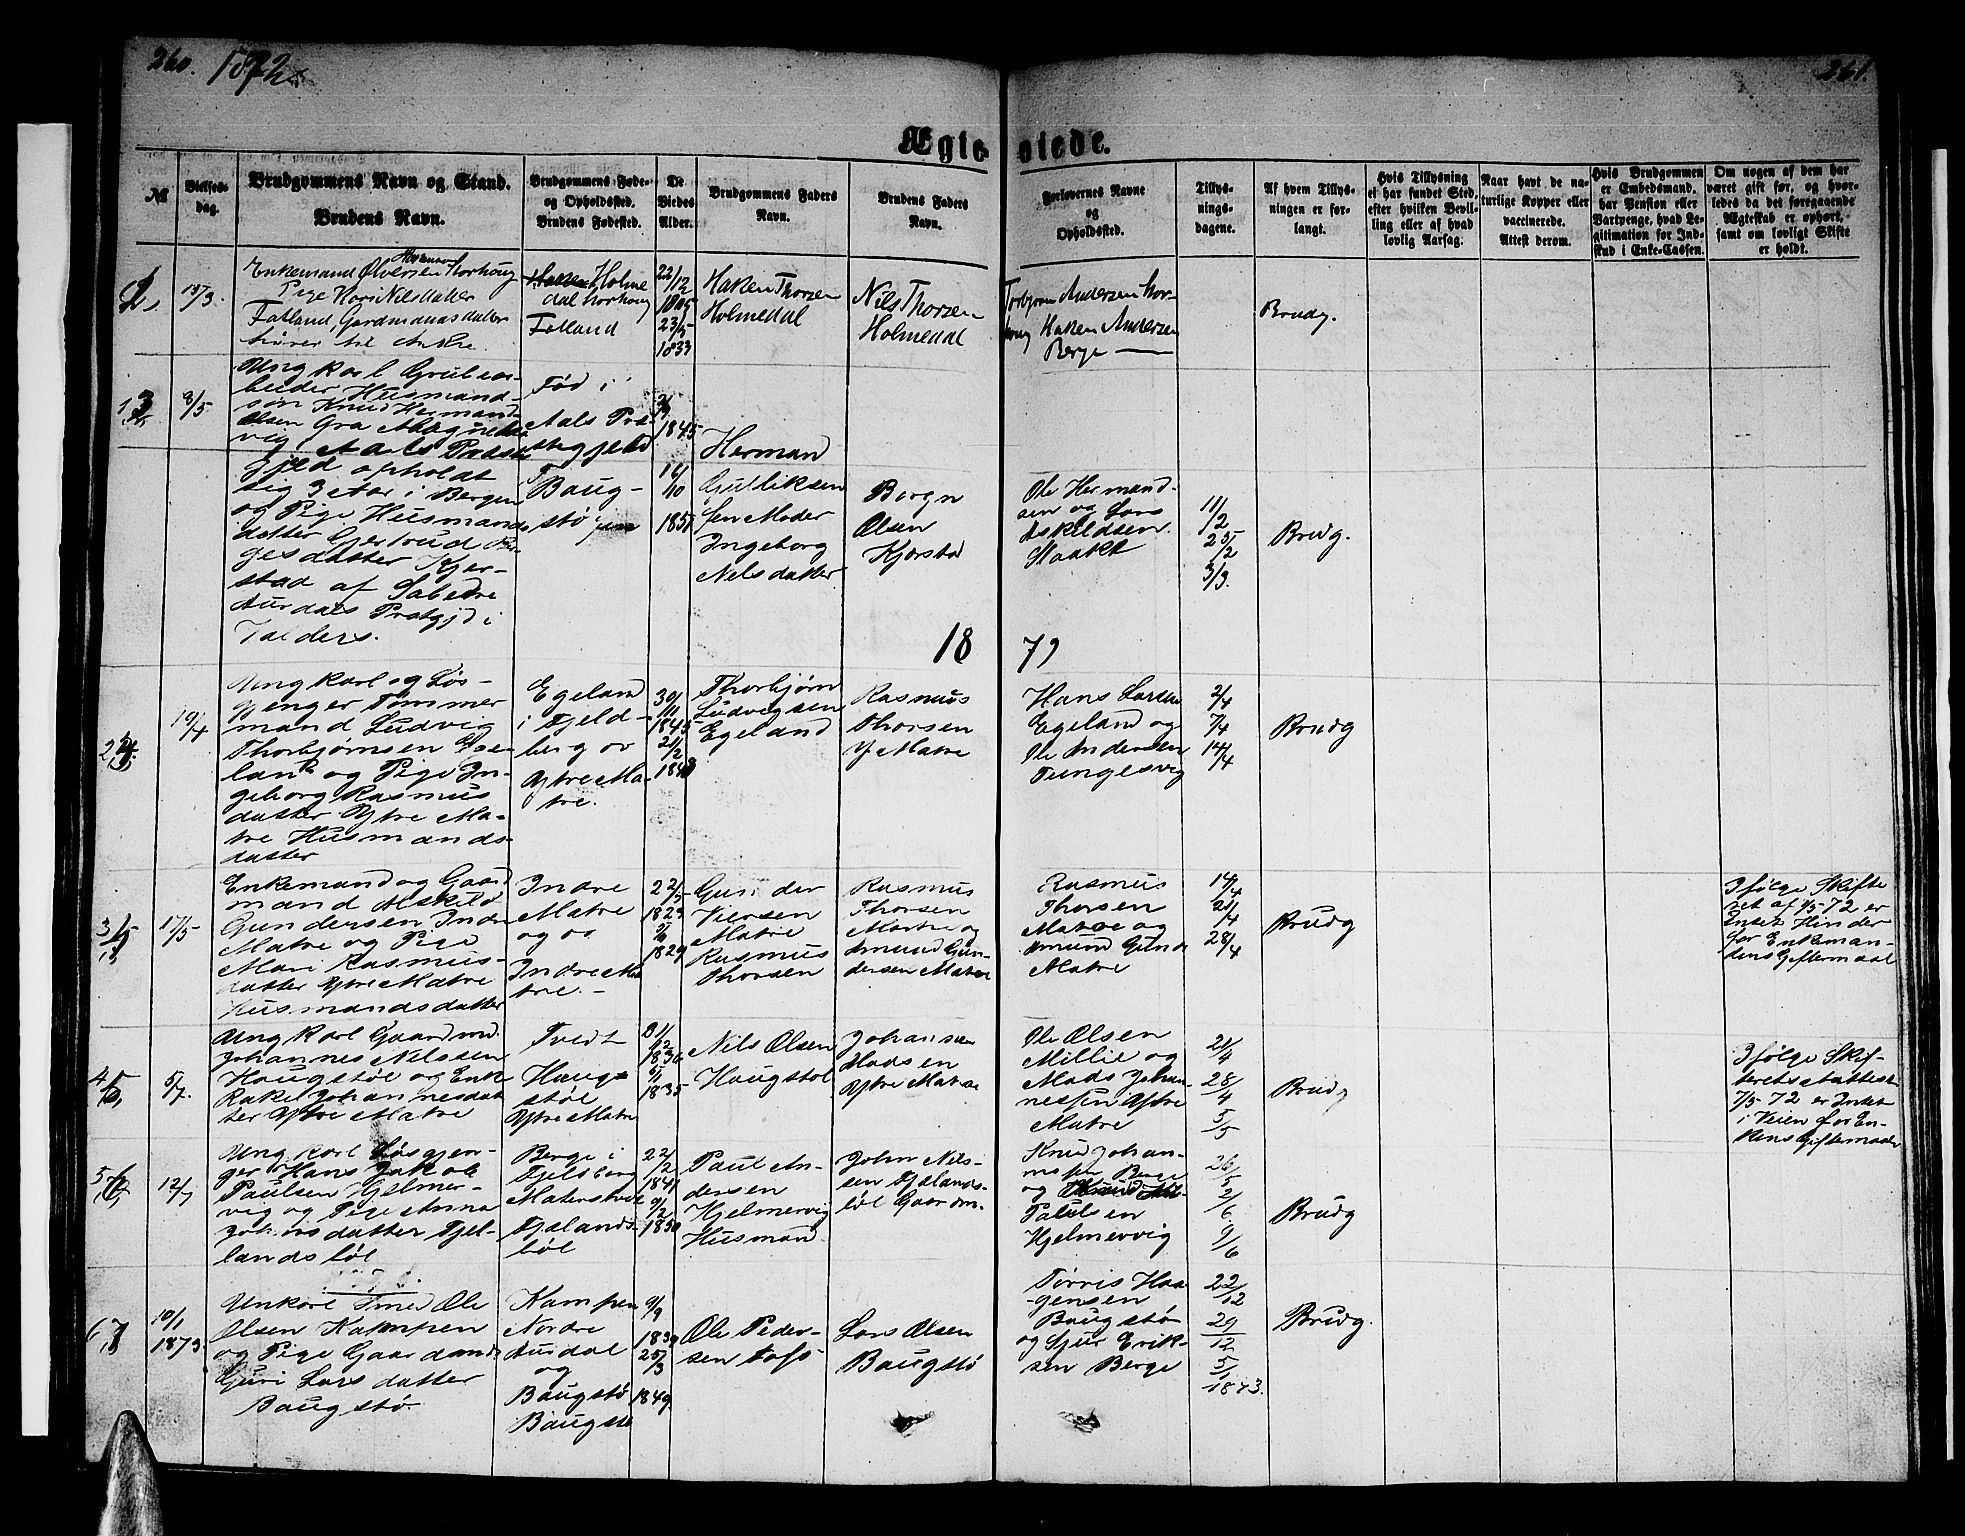 260. 1872.
261.
Ægteviede.
№
Vielses-
dag.
Brudgommens Navn og Stand.
Brudens Navn.
Brudgommens Føde-
og Opholdssted.
Brudens Fødested.
De
Viedes
Alder.
Brudgommens Faders
Navn.
Brudens Faders
Navn.
Forlovernes Navne
og
Opholdssted.
Tillys-
nings-
dagene.
Af hvem Tillys-
ningen er for-
langt.
Hvis Tillysning
ei har fundet Sted,
efter hvilken Bevil-
ling eller af hvad
lovlig Aarsag.
Naar havt de na-
turlige Kopper eller
vaccinerede.
Attest derom.
Hvis Brudgommen
er Embedsmand,
har Pension eller
Vartpenge, hvad Le-
gitimation for Ind-
skud i Enke-Cassen.
Om nogen af dem har
været gift før, og hvor-
ledes da det foregaaende
Ægteskab er ophørt,
samt om lovligt Skifte
er holdt.
13/3.
Enkemand
Pige Kari Nilsdatter
Fatland, Gardmandsdatter
Holme
dal
Fatland
22/12
1805
23/5
1833
Haken Thorsen
Holmedal
Nils Thorsen
Holmedal
Torbjørn Andersen
Haken Andersen
Berge
Brudg.
8/5
Ungkarl Grubear-
beider Husmand-
søn Knud Hermand-
Aals
gjeld opholdt
sig 3 Aar i Bergen
og Pige Husmands
datter Gertrud
gesdatter Kjer-
stad af
Aurdals Prstgjd i
Valders.
Fød i
Aals Præ-
stegjeld
Baug-
stø
1845
16/10
1851
Herman
Gulliksen
Moder
Ingeborg
Nelsdatter
Borgn
Olsen
Kjorstad
Ole Hermand-
sen og Lars
Askildsen
Staakt
11/2
25/2
3/3.
Brudg.
18 72
19/4
Ungkarl og Løs-
gjenger Tømmer
mand Ludvig
Thorbjørnsen Ege-
land og Pige In-
geborg Rasmus
datter Ytre Ma-
tre Husmands-
datter
Egeland
i Fjeld-
berg og
Ytre Ma-
tre.
30/11
1845
21/2
1848
Thorbjørn
Ludvigsen
Egeland
Rasmus
Thorsen
Y Matre
Hans Larsen
Egeland og
Ole Andersen
Tungesvig
2/4
7/4
14/4
Brudg
17/5
Enkemand og Gaard
mand Askild
Gundersen Indre
Matre og Pige
Mari Rasmus-
datter Ytre Matre
Husmandsdatter
Indre
Matre
og
Indre Ma
tre.
22/5
1823
1829
Gun der
Viersen
Matre
Rasmus
Thorsen
Rasmus
Thorsen
Matre og
Amund Gun-
dersen Matre
Rasmus
Thorsen
Matre og
Amund Gunde
Matre
14/4
21/4
28/4
Brudg
Ifølge Skifte
ret af 7/5 72 er
Intet Hinder
for Enkeman-
dens Giftermaal
5/7.
Ungkarl Gaardmd.
Johannes Nilssen
Haugstøl og Enke
Rakel Johannesdat
ter Ytre Matre
Tvedt
Haug-
støl
Ytre Matre
31/12
1836
1835
Nils Olsen
Haugstøl
Johansen
Madsen
Ytre Matre
Ole Olsen
Millie og
Mads Johan-
nessen Ytre
Matre
21/4
28/4
5/5
Brudg
Ifølge Skif-
terets Attest
7/5 72 er Intet
i Veien for En-
kens Giftermaal
12/7
Ungkarl Løsgjen-
ger Hans Jakob
Paulsen Hjelmer-
vig og Pige Anna
Johnsdatter Fjel-
landsbøl
Berge i
Fjelberg
Fjælands-
bøl
22/2
1841
9/2
1850
Paul An-
dersen
Hjelmervig
Husmand
John Nils-
sen Fjælands-
bøl Gaardm.
Knud Johan-
nesen Berge
og
Paulsen
Hjelmervig
26/5
2/6
9/6
Brudg
10/1
1873.
Unkarl Smed Ole
Olsen Kampen
og Pige Gaardmands
Guri Larsdatter
Baugstø.
Kampen
Nordre
Aurdal
og
Baugstø
Baugstø
9/9
1839
25/3
1849
Ole Peder-
sen
Lars Olsen
Baugstø
Tørris Haa-
gensen
Baugstø
og Sjur Erik-
sen Berge
22/12
29/12
5/1
1873.
Brudg.